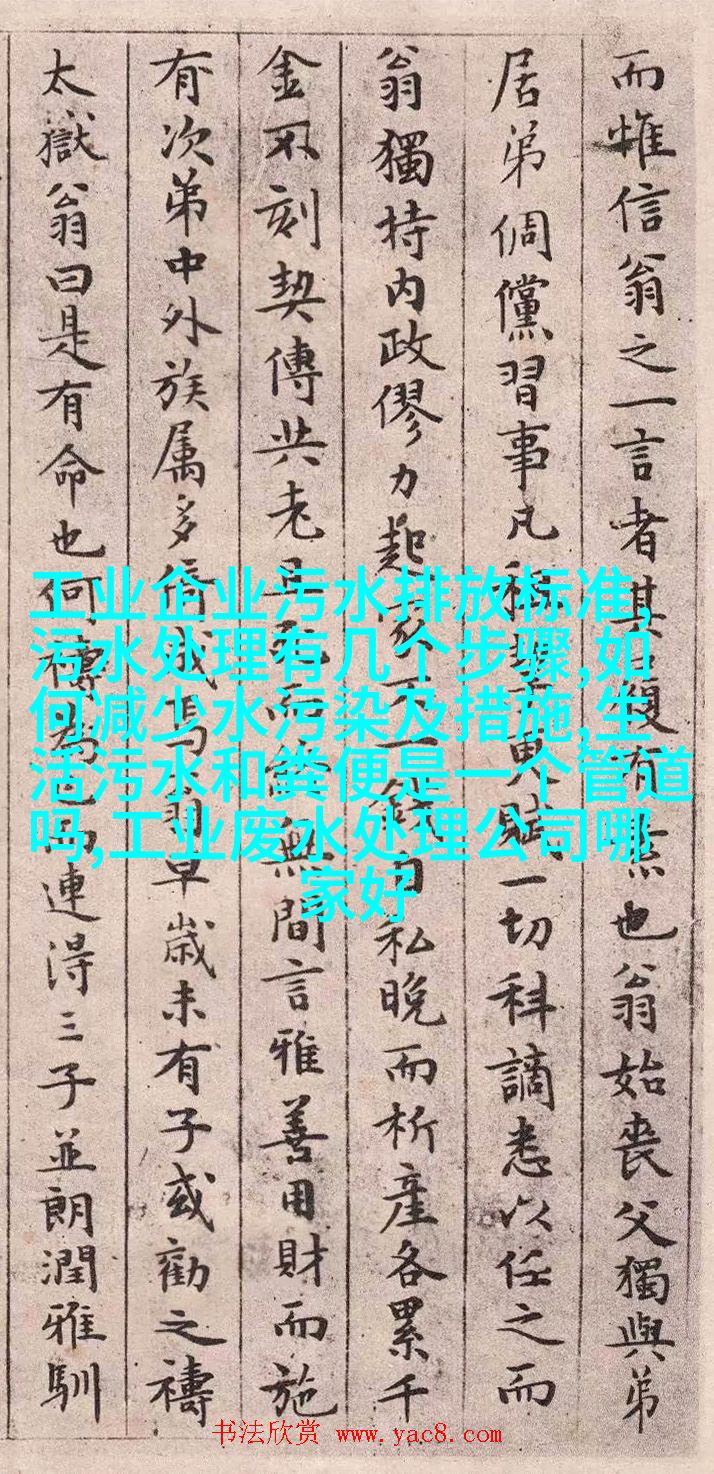 而惟信翁之一言者其復有素也翁始喪父獨與弟
居弟倜儻習事凡租賦一切科謫悉以任之而
翁獨持内政僇力起家不一錢自私晚而析産各累千
金不刻契傳共老且死而無間言雅善用財而施
有次第中外族属多倚成焉翁早歲未有子或勸之禱
太嶽翁曰是有命也何禱為已而連得三子並朗潤雅馴
工业企业污水排放标准,
污水处理有几个步骤,如
何减少水污染及措施,生
活污水和粪便是一个管道
吗,工业废水处理公司哪
家好
书法欣赏 www.yac8.com